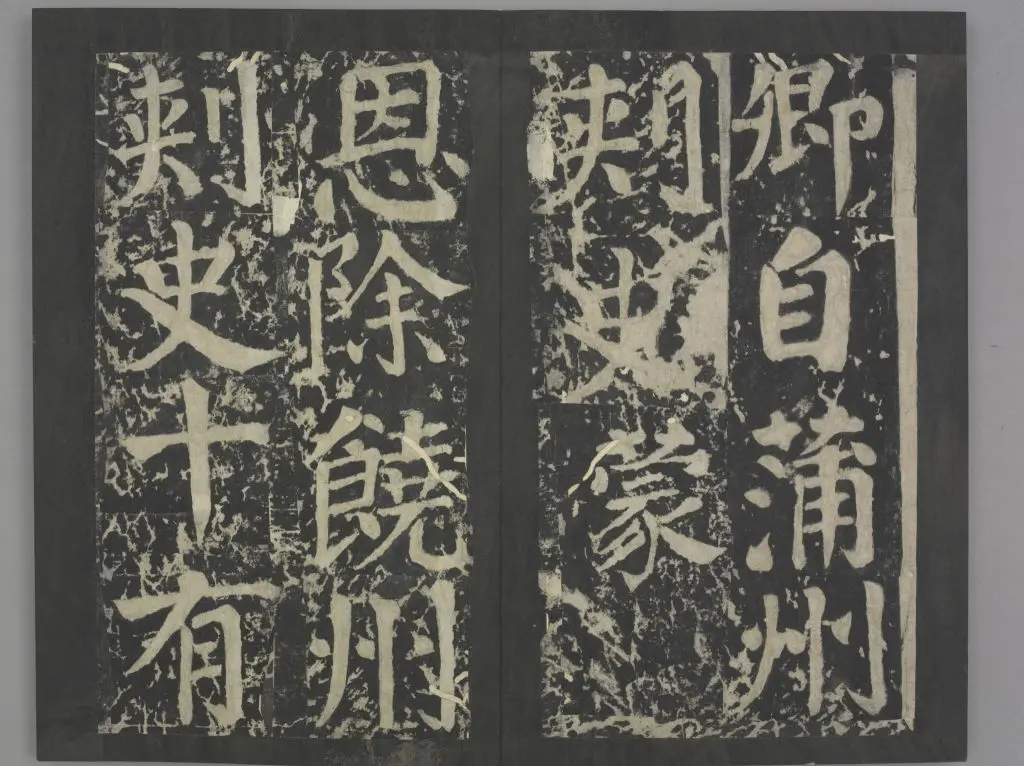 卿自蒲州
刺史蒙
恩除饒州
刺史十有